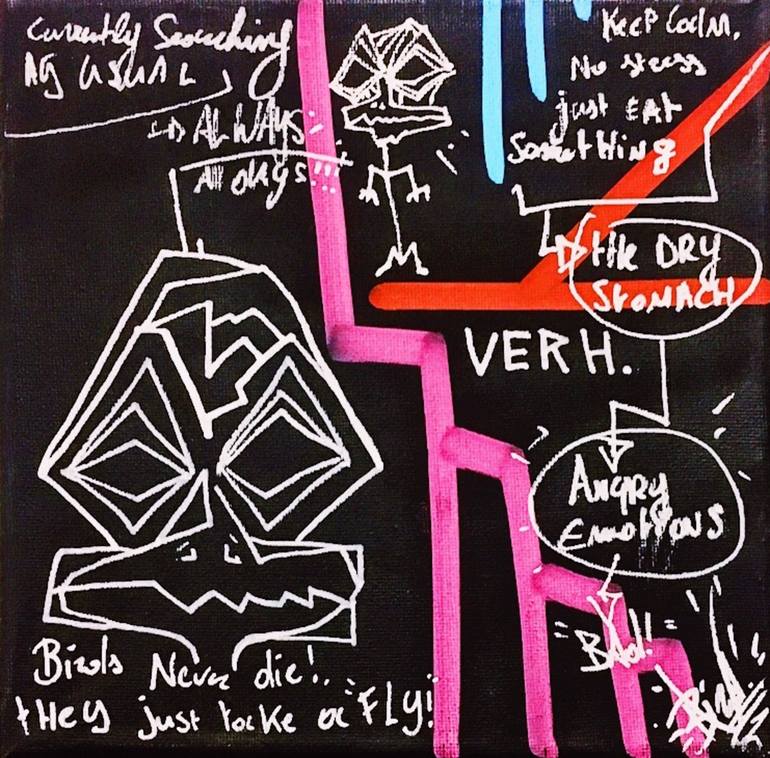 Currently Searching
AS USUAL
ALWAYS
All days!!!
KEEP CALM.
No stress
just EAT
Something
tHe DRY
STOMACH
VERH.
ANGRY
EmotIONS
= BAd!! =
Birds Never die!..
tHEY just tacke a "FLY!